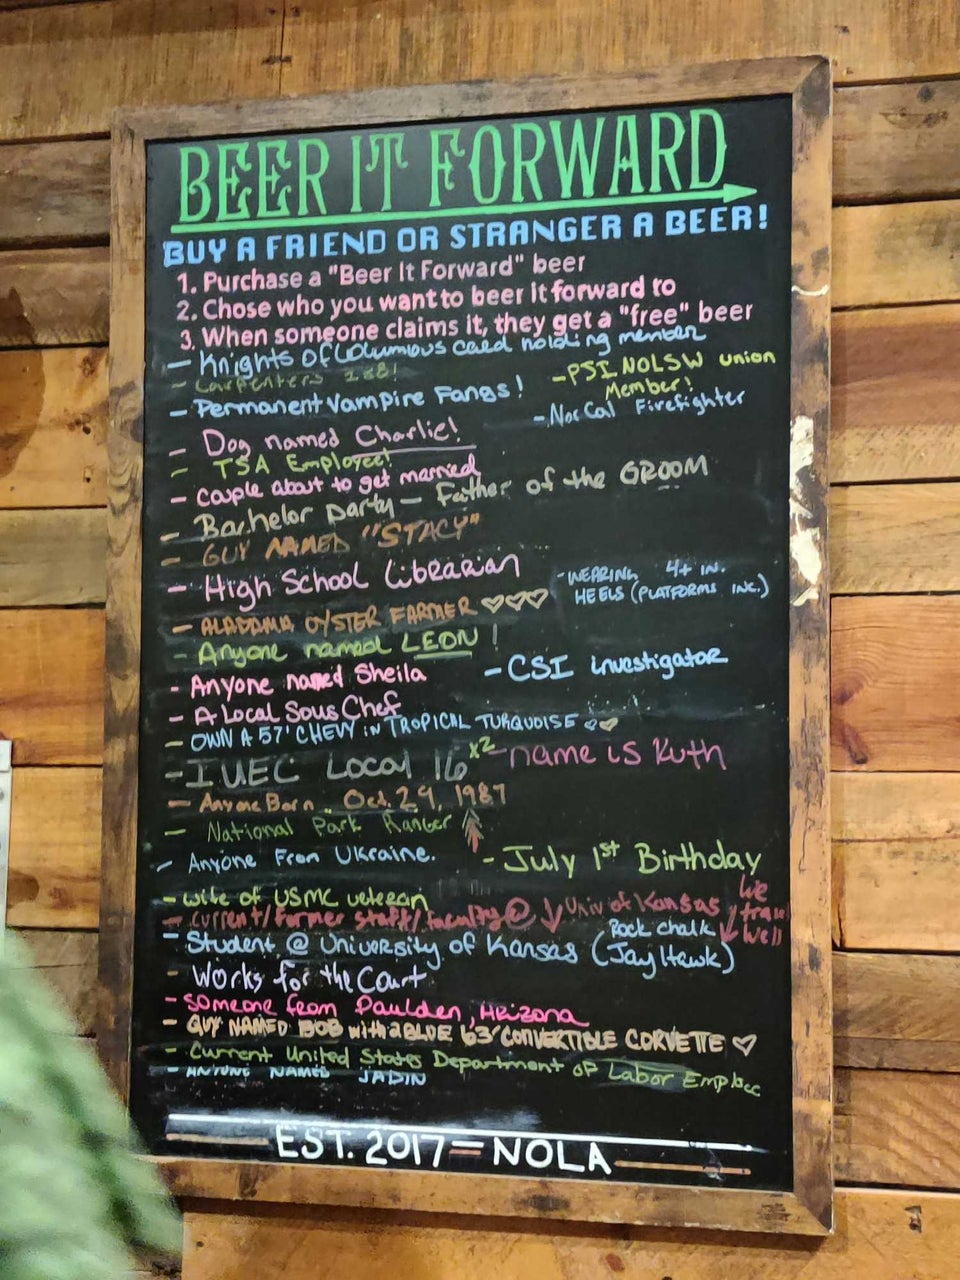 BEER IT FORWARD
BUY A FRIEND OR STRANGER A BEER!
1. Purchase a "Beer It Forward" beer
2. Chose who you want to beer it forward to
3. When someone claims it, they get a "free" beer
- Knights of Columbus card holding member
- Carpenters
- PSI NOLSW union
Member!
- Permanent Vampire Fangs!
- Nor Cal Firefighter
- Dog named Charlie!
- TSA Employee!
- couple about to get married
- Bachelor party - Father of the GROOM
- GUY NAMED "STACY"
- High School Librarian
- WEARING 4+ IN.
HEELS (PLATFORMS INC.)
- ALABAMA OYSTER FARMER ♡♡♡
- Anyone named LEON!
- Anyone named Sheila
- CSI investigator
- A Local Sous Chef
- OWN A 57' CHEVY in TROPICAL TURQUOISE ♡♡
- IUEC Local 16 x2
- name is Ruth
- Anyone Born Oct. 29, 1987
- National Park Ranger
- Anyone From Ukraine.
- July 1st Birthday
- wife of USMC veteran
- current/former staff/faculty @ ↓ Univ of Kansas
We
travel
well
Rock chalk
- Student @ University of Kansas (Jay Hawk)
- Works for the Court
- someone from Paulden, Arizona
- GUY NAMED BOB with a BLUE 63' CONVERTIBLE CORVETTE ♡
- Current United States Department of Labor Employee
- ANYONE NAMED JADIN
EST. 2017 = NOLA